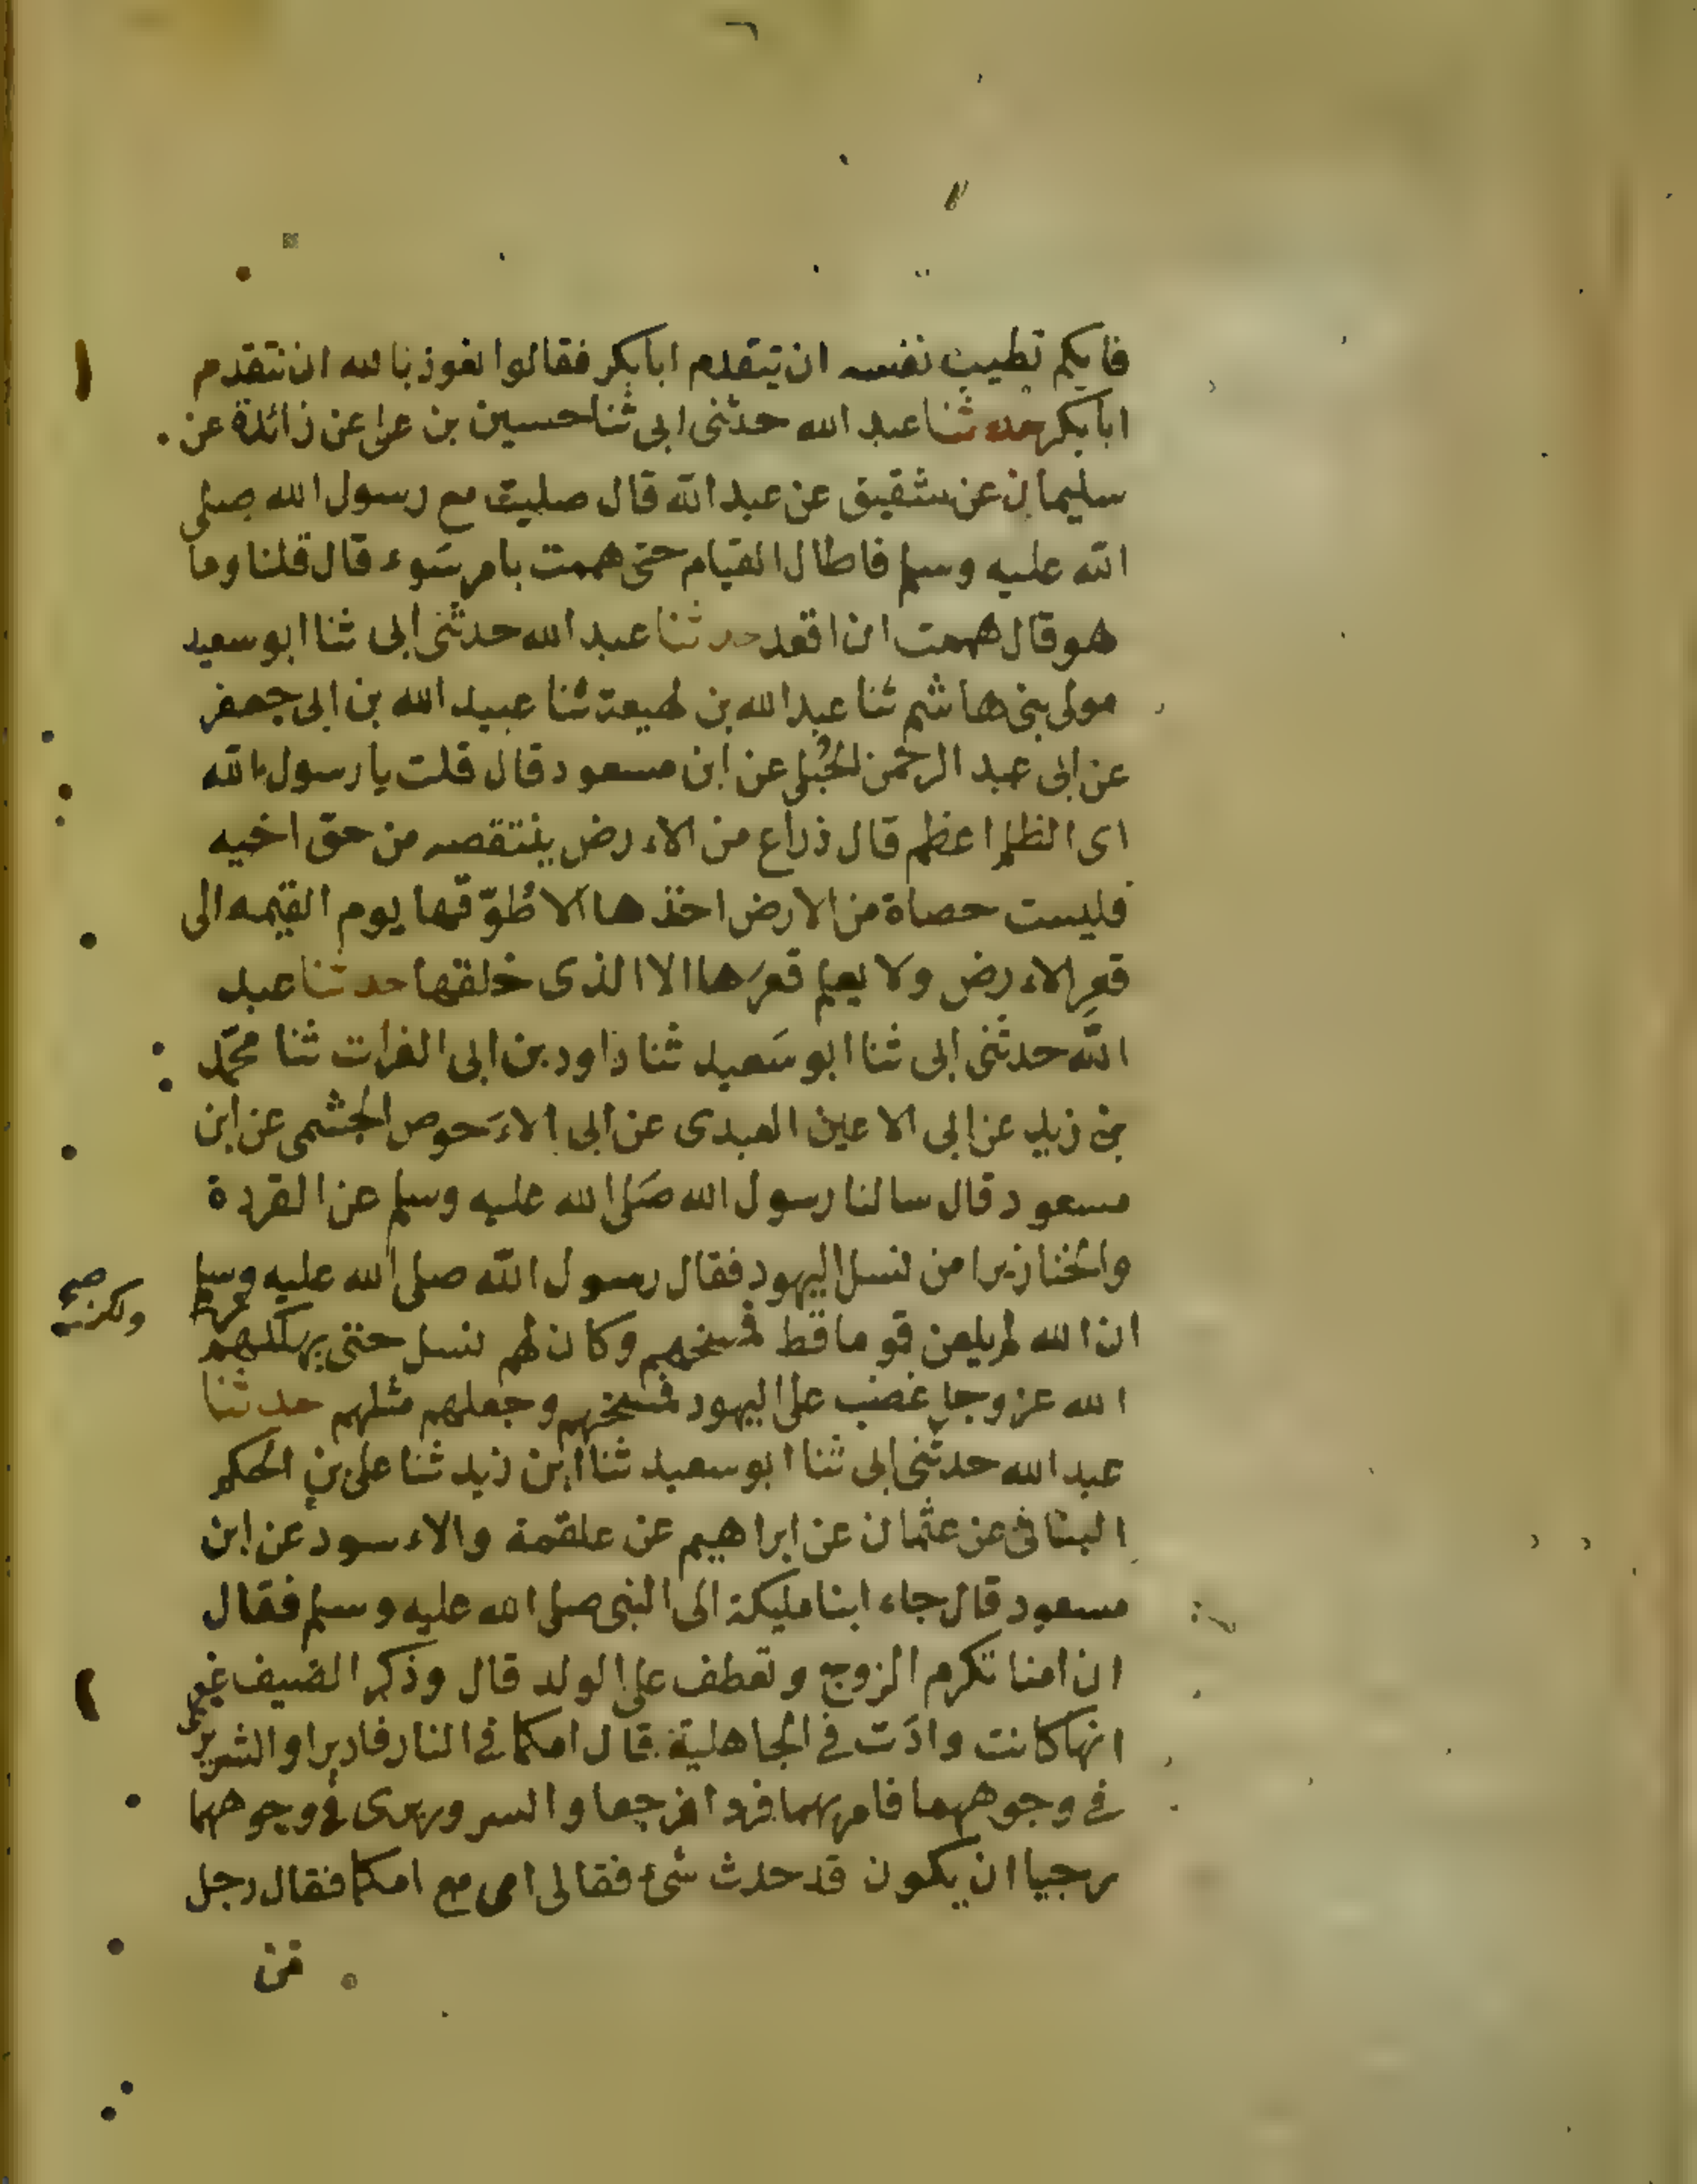 ٦
فايكم تطيب نفسه ان يتقدم ابا بكر فقالوا نعوذ بالله ان نتقدم
ابا بكر حدثنا عبد الله حدثنى ابى ثنا حسين بن على عن زائدة عن
سليمان عن شقيق عن عبد الله قال صليت مع رسول الله صلى
الله عليه وسلم فاطال القيام حتى هممت بامر سَوء قال قلنا وما
هو قال هممت ان اقعد حدثنا عبد الله حدثنى ابى ثنا ابو سعيد
مولى بنى هاشم ثنا عبد الله بن لهيعة ثنا عبيد الله بن ابى جعفر
عن ابى عبد الرحمن الحُبُلى عن ابن مسعود قال قلت يا رسول الله
اى الظلم اعظم قال ذراع من الارض ينتقصه من حق اخيه
فليست حصاة من الارض اخذها الا طُوّقها يوم القيمه الى
قعرِ الارض ولا يعلم قعرَها الا الذى خلقها حدثنا عبد
الله حدثنى ابى ثنا ابو سَعيد ثنا داود بن ابى الفرات ثنا محمّد
بن زيد عن ابى الاعين العبدى عن ابى الاَحوص الجشمى عن ابن
مسعود قال سالنا رسول الله صَلى الله عليه وسلم عن القردة
والخنازير امن نسل اليهود فقال رسول الله صلى الله عليه وسلم
ان الله لم يلعن قوما قط فمسخهم وكان لهم نسل حتى يهلكهم
ولكن صح
الله عز وجل غضب على اليهود فمسخهم وجعلهم مثلهم حدثنا
عبد الله حدثنى ابى ثنا ابو سعيد ثنا ابن زيد ثنا على بن الحكم
البنانى عن عثمان عن ابراهيم عن علقمة والاسود عن ابن
مسعود قال جاء ابنا مليكة الى النبى صلى الله عليه وسلم فقال
ان امنا تكرم الزوج وتعطف على الولد قال وذكر الضيف غير
انها كانت وادَت فى الجاهلية قال امكما فى النار فادبرا والشر يرى
فى وجوههما فامر بهما فردا فرجعا والسرور يرى فى وجوههما
رجيا ان يكون قد حدث شىء فقال امى مع امكما فقال رجل
من